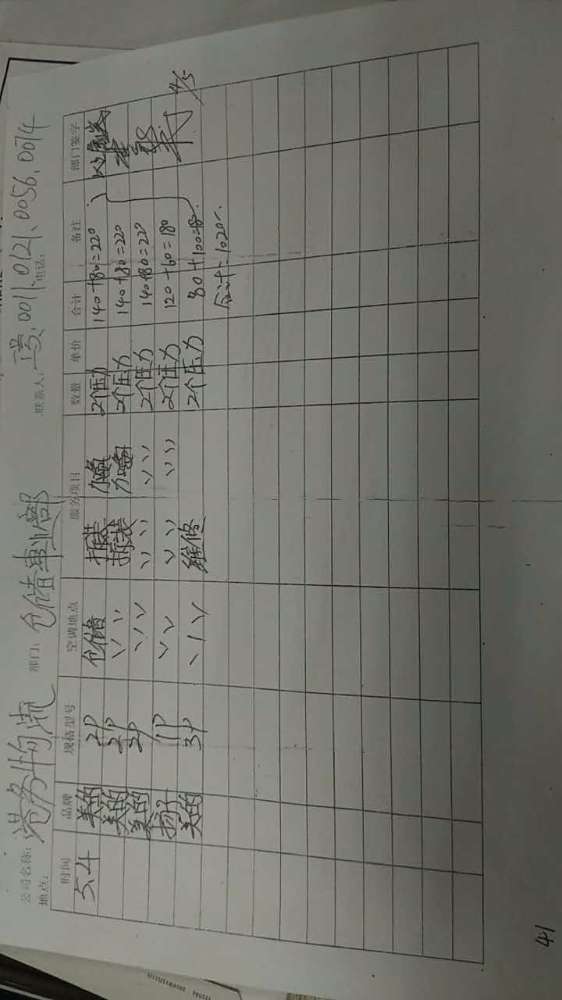 公司名称: 港务物流 部门: 仓储事业部 联系人: 0011、0121、0056、0074
地点: 电话:
时间 品牌 规格型号 空调地点 服务项目 数量 单价 合计 备注 部门签字
5.4 美的 2P 仓储 拆装 加氟 2个压力 140+80=220
美的 2P 〃 拆装 加氟 2个压力 140+80=220
美的 2P 〃 〃 〃 2个压力 140+80=220
扬子 1P 〃 〃 〃 2个压力 120+60=180
美的 3P 〃 维修 2个压力 80+100=180
合计=1020
41